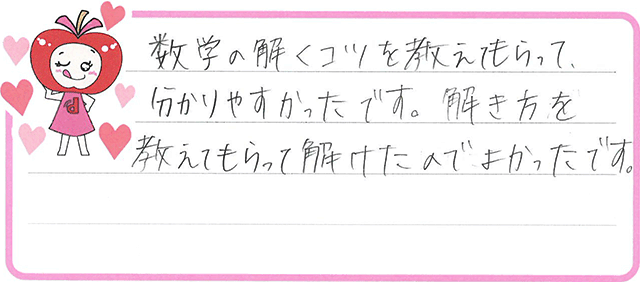 数学の解くコツを教えてもらって、
分かりやすかったです。解き方を
教えてもらって解けたのでよかったです。